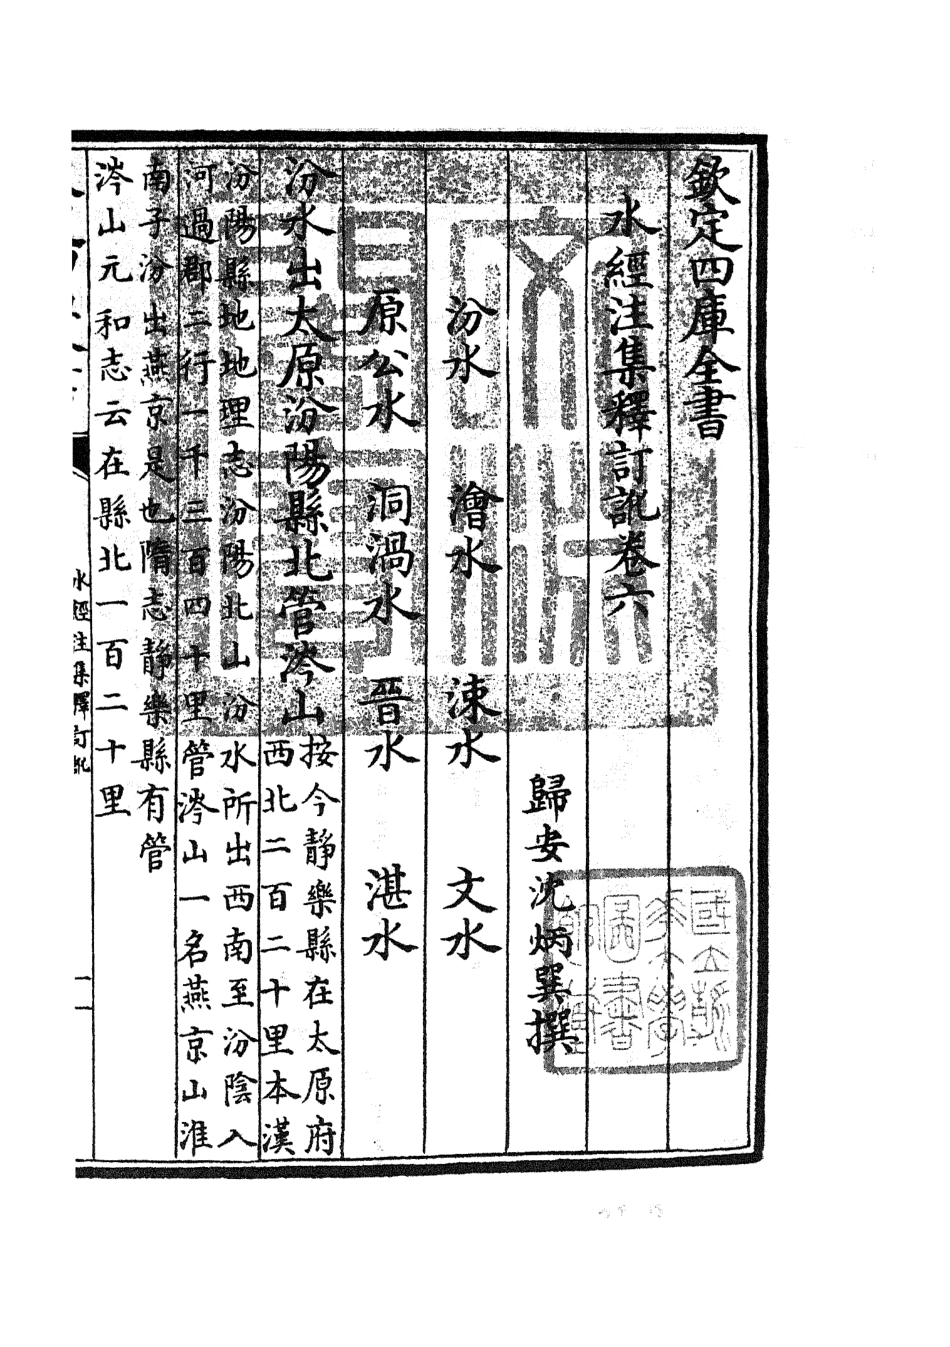 欽定四庫全書
水經注集釋訂訛卷六
歸安沈炳巽撰
汾水 澮水 涑水 文水
原公水 洞渦水 晉水 湛水
汾水出太原汾陽縣北管涔山
按今靜樂縣在太原府
西北二百二十里本漢
汾陽縣地地理志汾陽北山汾水所出西南至汾陰入
河過郡二行一千三百四十里管涔山一名燕京山淮
南子汾出燕京是也隋志靜樂縣有管
涔山元和志云在縣北一百二十里
水經注集釋訂訛